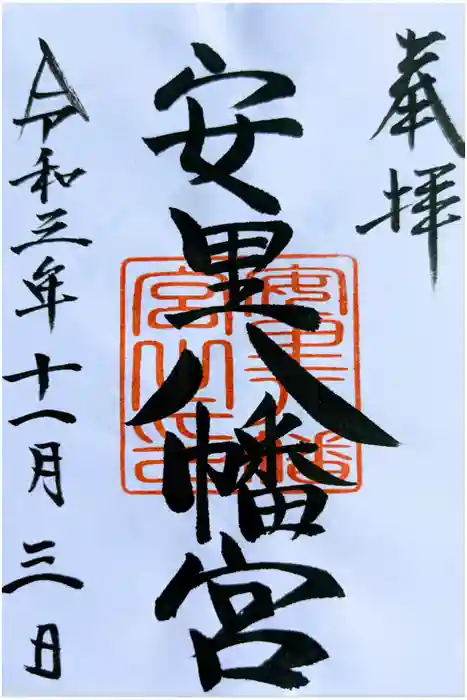 奉拝
安里八幡宮
令和三年十一月三日